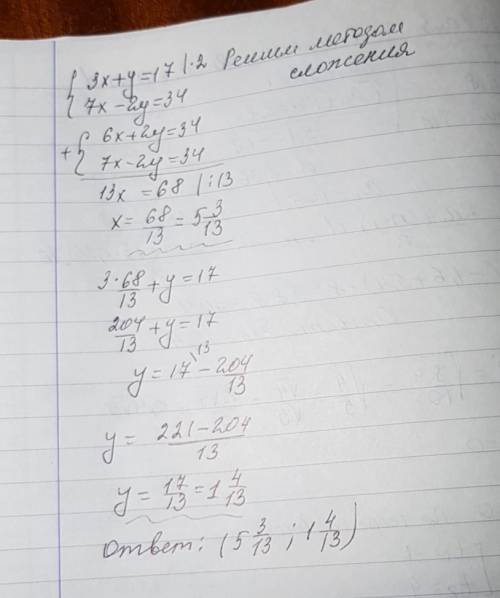 { 3x+y=17 |·2 Решим методом
7x-2y=34 сложения
+{ 6x+2y=34
7x-2y=34
13x = 68 |:13
x = 68/13 = 5 3/13
3·68/13 + y = 17
204/13 + y = 17
y = 17\13 - 204/13
y = 221-204/13
y = 17/13 = 1 4/13
Ответ: (5 3/13 ; 1 4/13)